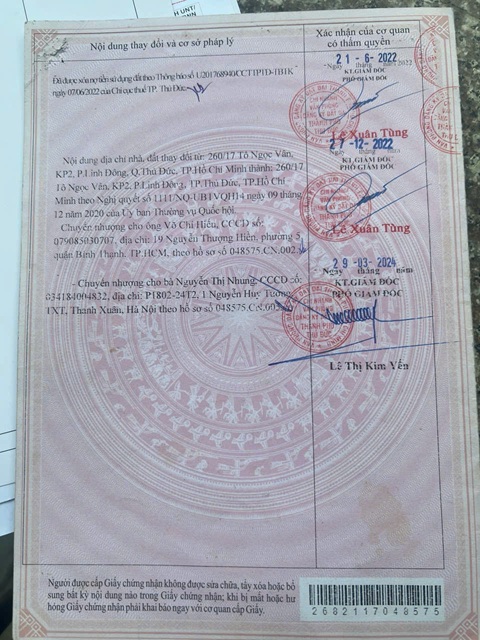 Nội dung thay đổi và cơ sở pháp lý
Xác nhận của cơ quan
có thẩm quyền
Đã được xóa nợ tiền sử dụng đất theo Thông báo số
ngày 07/06/2022 của Chi cục thuế TP. Thủ Đức
21-6-2022
KT.GIÁM ĐỐC
PHÓ GIÁM ĐỐC
Lê Xuân Tùng
Nội dung địa chỉ nhà, đất thay đổi từ: 260/17 Tô Ngọc Vân,
KP2, P.Linh Đông, Q.Thủ Đức, TP.Hồ Chí Minh thành: 260/17
Tô Ngọc Vân, KP2, P.Linh Đông, TP.Thủ Đức, TP.Hồ Chí
Minh theo Nghị quyết số 1111/NQ-UBTVQH14 ngày 09 tháng
12 năm 2020 của Ủy ban Thường vụ Quốc hội.
Chuyển nhượng cho ông Võ Chí Hiền, CCCD số:
079085030707, địa chỉ: 19 Nguyễn Thượng Hiền, phường 5,
quận Bình Thạnh, TP.HCM, theo hồ sơ số 048575.CN.002
27-12-2022
Ngày tháng năm
KT.GIÁM ĐỐC
PHÓ GIÁM ĐỐC
Lê Xuân Tùng
- Chuyển nhượng cho bà Nguyễn Thị Nhung, CCCD số:
034184004832, địa chỉ: P1802-24T2, 1 Nguyễn Huy Tưởng,
TXT, Thanh Xuân, Hà Nội theo hồ sơ số 048575.CN.003
29-03-2024
Ngày tháng năm
KT.GIÁM ĐỐC
PHÓ GIÁM ĐỐC
Lê Thị Kim Yến
Người được cấp Giấy chứng nhận không được sửa chữa, tẩy xóa hoặc bổ
sung bất kỳ nội dung nào trong Giấy chứng nhận; khi bị mất hoặc hư
hỏng Giấy chứng nhận phải khai báo ngay với cơ quan cấp Giấy.
2682117048575